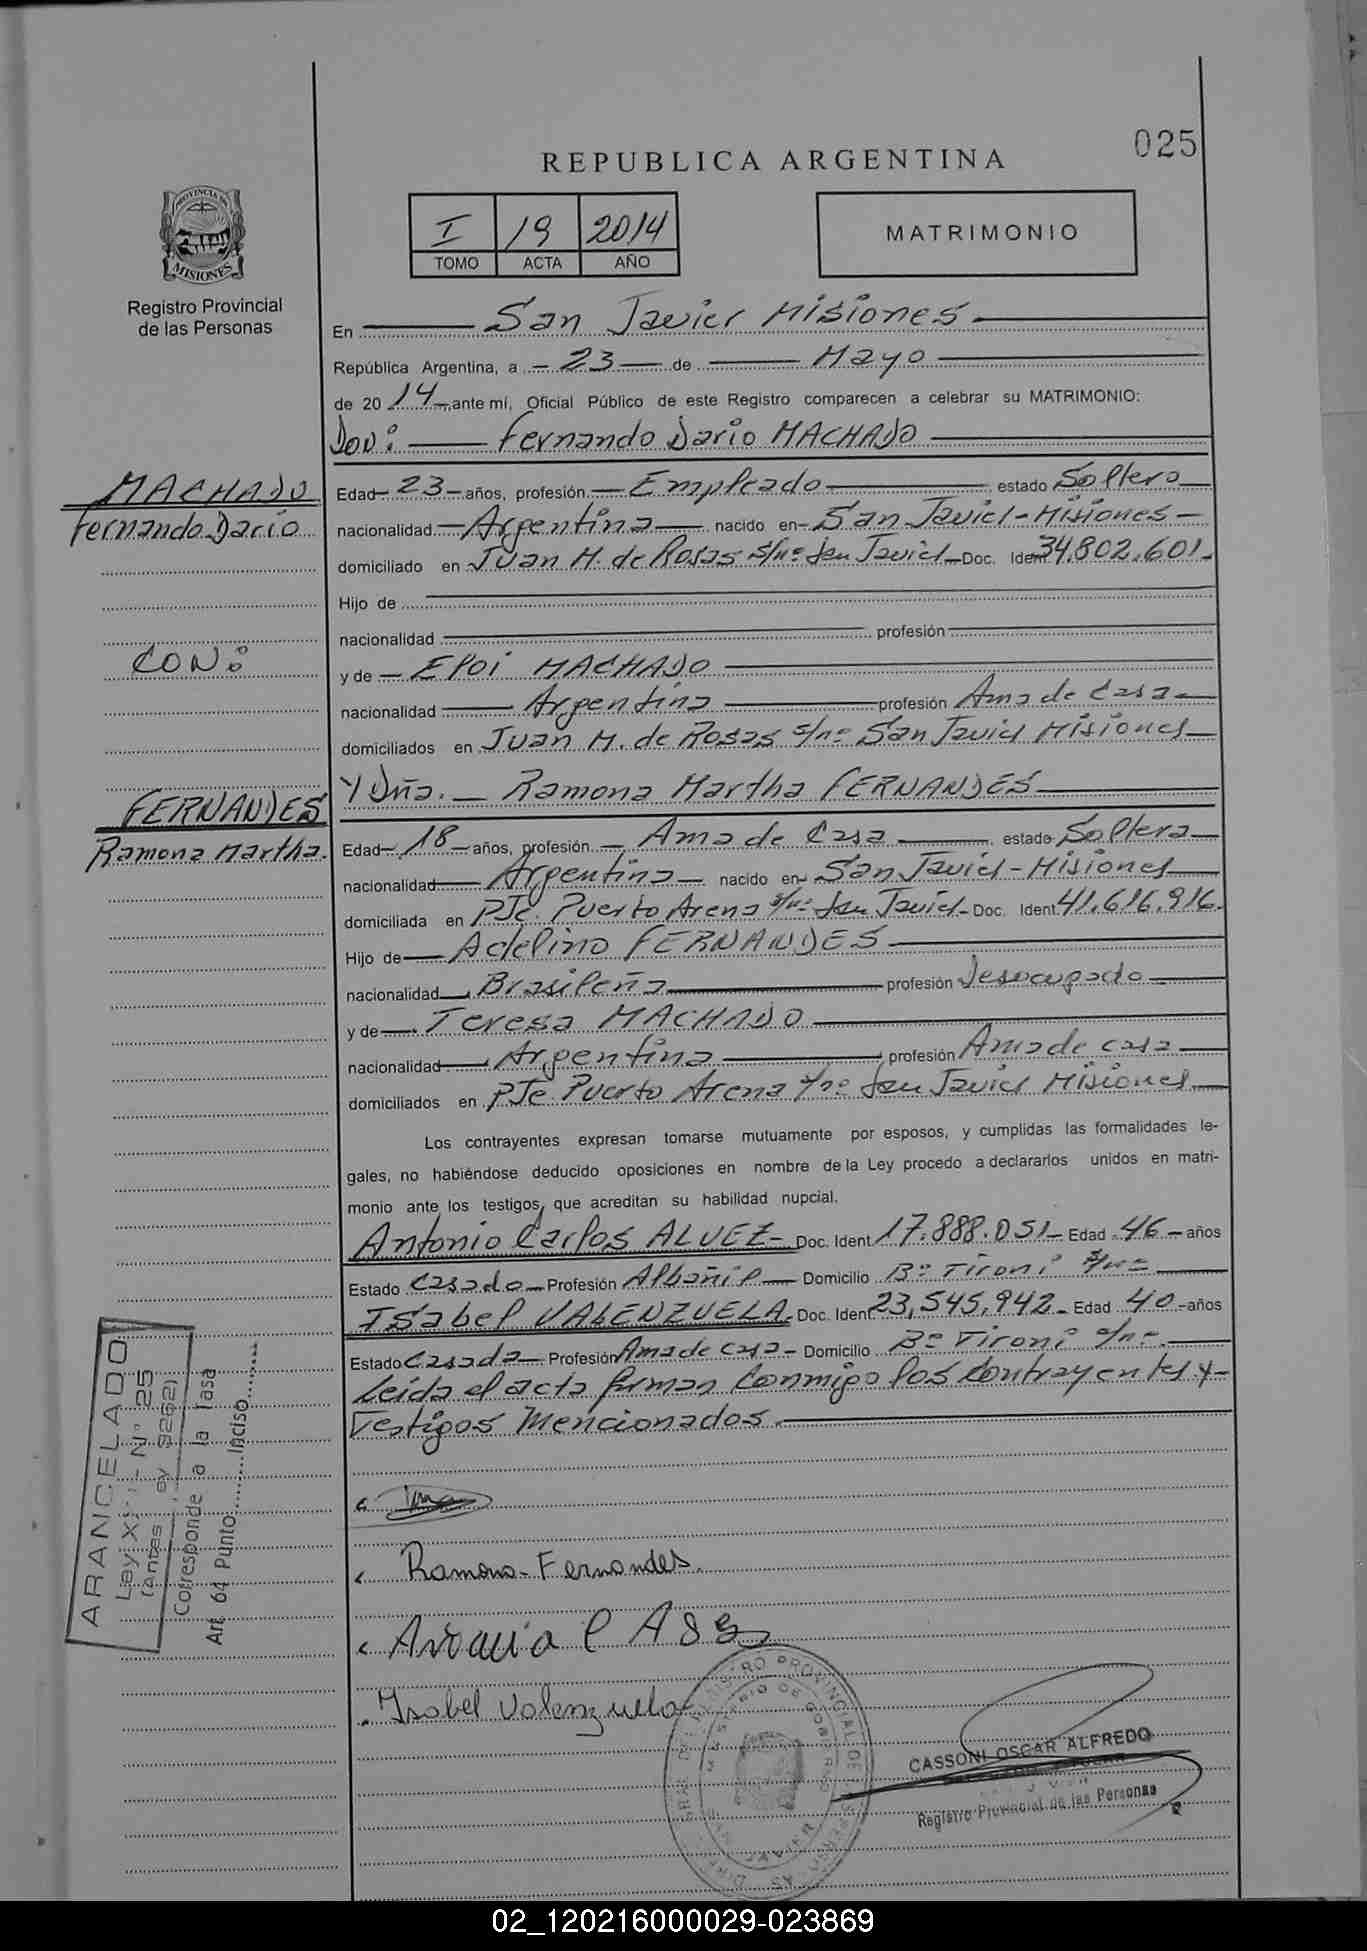 025
REPUBLICA ARGENTINA
PROVINCIA DE
MISIONES
Registro Provincial
de las Personas
I 19 2014
TOMO ACTA AÑO
MATRIMONIO
En San Javier Misiones
República Argentina, a 23 de Mayo
de 20 14 ante mí, Oficial Público de este Registro comparecen a celebrar su MATRIMONIO:
Don: Fernando Dario MACHADO
MACHADO
Fernando Dario
CON:
FERNANDES
Ramona Martha.
Edad 23 años, profesión Empleado estado Soltero
nacionalidad Argentina nacido en San Javier - Misiones
domiciliado en Juan M. de Rosas s/nº San Javier Doc. Ident. 34.802.601
Hijo de
nacionalidad profesión
y de Eloi MACHADO
nacionalidad Argentina profesión Ama de Casa
domiciliados en Juan M. de Rosas s/nº San Javier Misiones
Y Dña. Ramona Martha FERNANDES
Edad 18 años, profesión Ama de Casa estado Soltera
nacionalidad Argentina nacido en San Javier - Misiones
domiciliada en PJe. Puerto Arena s/nº San Javier Doc. Ident. 41.616.916.
Hijo de Adelino FERNANDES
nacionalidad Brasileña profesión Desocupado
y de Teresa MACHADO
nacionalidad Argentina profesión Ama de casa
domiciliados en PJe Puerto Arena s/nº San Javier Misiones
Los contrayentes expresan tomarse mutuamente por esposos, y cumplidas las formalidades le-
gales, no habiéndose deducido oposiciones en nombre de la Ley procedo a declararlos unidos en matri-
monio ante los testigos, que acreditan su habilidad nupcial.
Antonio Carlos ALVEZ Doc. Ident. 17.888.051 Edad 46 años
Estado Casado Profesión Albañil Domicilio Bº Tironi s/nº
Isabel VALENZUELA Doc. Ident. 23,545,942 Edad 40 años
Estado Casada Profesión Ama de casa Domicilio Bº Tironi s/nº
Leída el acta firman conmigo los contrayentes y
testigos mencionados.
ARANCELADO
Ley - Nº 25
(antes Ley 3262)
Corresponde a la Tasa
Art. 64 Punto Inciso
Ramona Fernandes.
Isabel Valenzuela
REGISTRO PROVINCIAL DE
MINISTERIO DE GOBIERNO
CASSONI OSCAR ALFREDO
Registro Provincial de las Personas
02_120216000029-023869